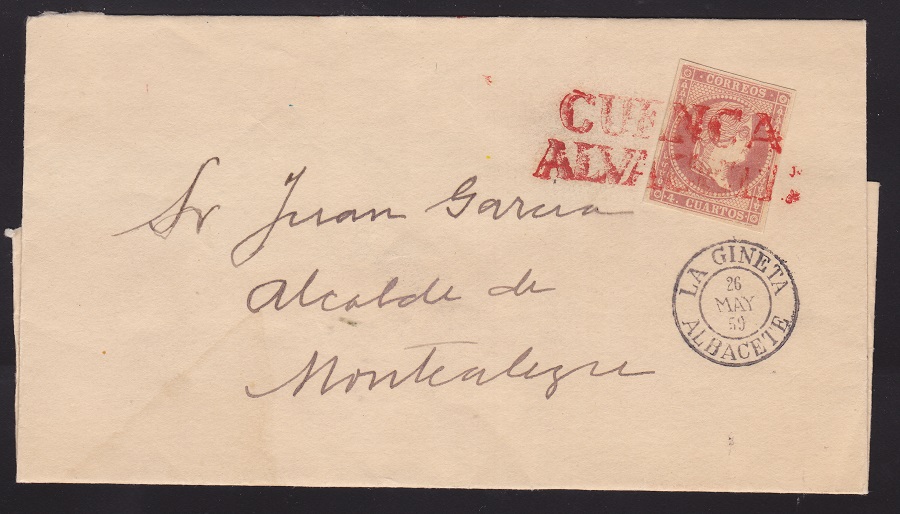 CORREOS
CUENCA
4 CUARTOS
Sr Juan Garcia
Alcalde de
Montealegre
LA GINETA
26
MAY
59
ALBACETE